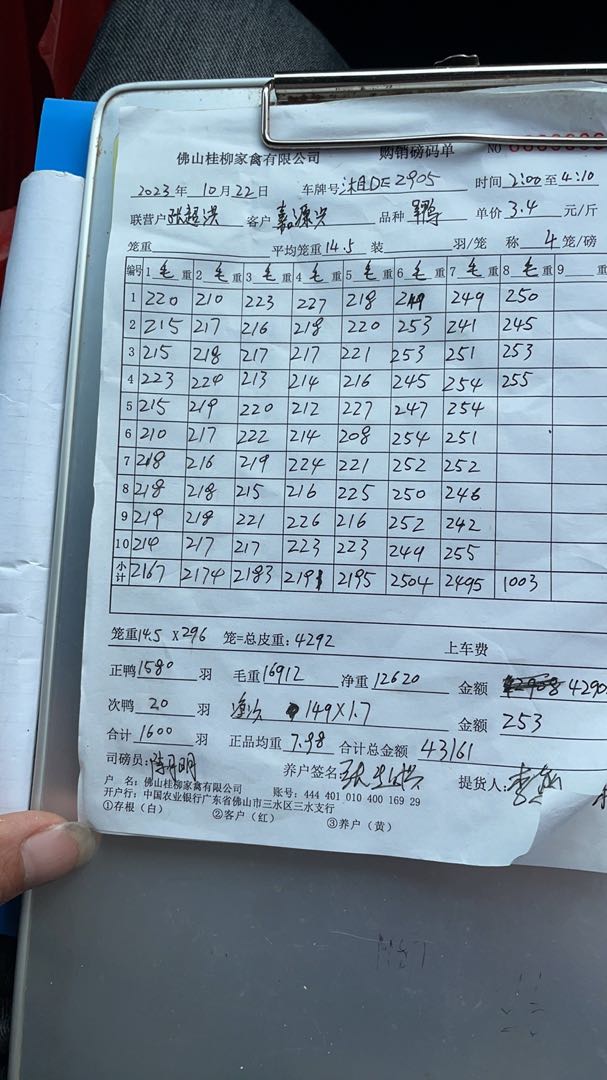 佛山桂柳家禽有限公司 购销磅码单 NO
2023年 10月22日 车牌号 湘DE2905 时间 2:00 至 4:10
联营户 张超洪 客户 嘉源兴 品种 单价 3.4 元/斤
笼重 平均笼重 14.5 装 羽/笼 称 4 笼/磅
编号 1 毛 重 2 毛 重 3 毛 重 4 毛 重 5 毛 重 6 毛 重 7 毛 重 8 毛 重 9 重
1 220 210 223 227 218 249 249 250
2 215 217 216 218 220 253 241 245
3 215 218 217 217 221 253 251 253
4 223 224 213 214 216 245 254 255
5 215 219 220 212 227 247 254
6 210 217 222 214 208 254 251
7 218 216 219 224 221 252 252
8 218 218 215 216 225 250 246
9 219 218 221 226 216 252 242
10 214 217 217 223 223 249 255
小计 2167 2174 2183 2191 2195 2504 2495 1003
笼重 14.5 X 296 笼=总皮重: 4292 上车费
正鸭 1580 羽 毛重 16912 净重 12620 金额 4290
次鸭 20 羽 149X1.7 金额 253
合计 1600 羽 正品均重 7.98 合计总金额 43161
司磅员: 养户签名 提货人:
户 名: 佛山桂柳家禽有限公司 账号: 444 401 010 400 169 29
开户行: 中国农业银行广东省佛山市三水区三水支行
①存根（白） ②客户（红） ③养户（黄）